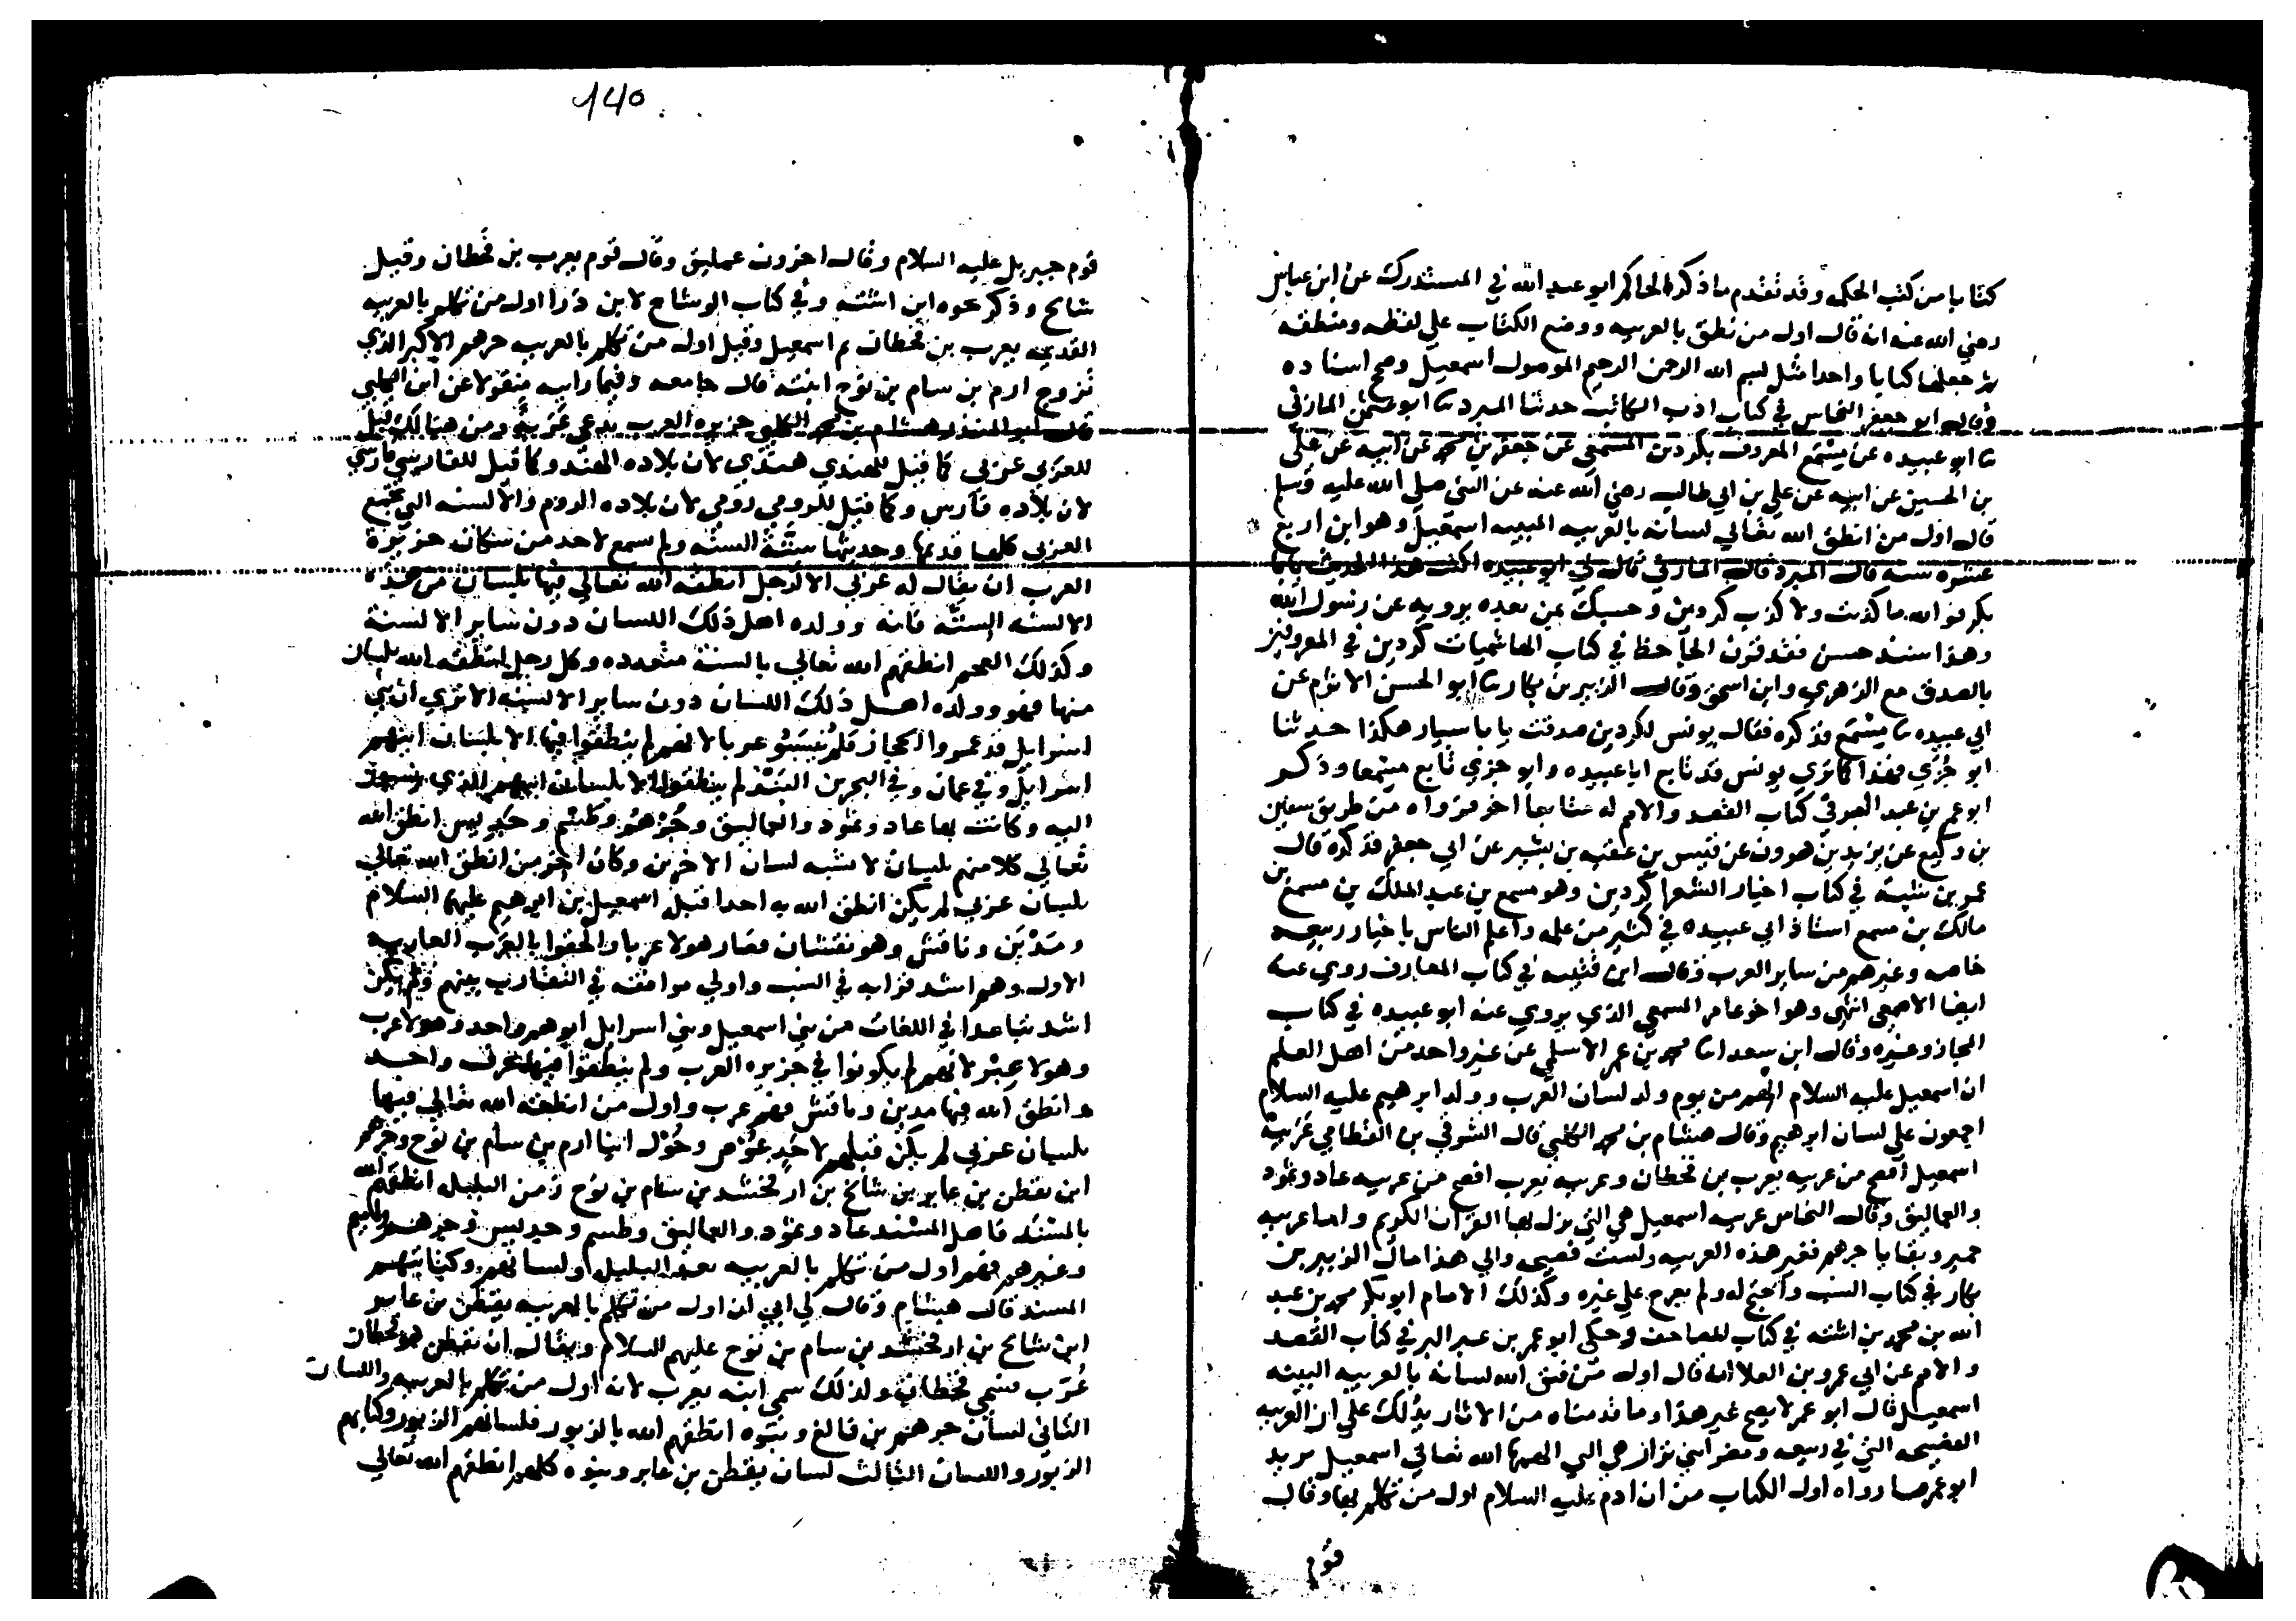 كتابا من كتب الحكم وقد تقدم ما ذكره الحاكم ابو عبد الله في المستدرك عن ابن عباس
رضي الله عنه انه قال اول من نطق بالعربيه ووضع الكتاب علي لفظه ومنطقه
ثم جعلها كتابا واحدا مثل بسم الله الرحمن الرحيم الموصول اسمعيل وصحح اسناده
وقال ابو جعفر النحاس في كتاب ادب الكاتب حدثنا المبرد ثنا ابو عثمن المازني
ثنا ابو عبيده عن مسمع المعروف بكردين المسمعي عن جعفر بن محمد عن ابيه عن علي
بن الحسين عن ابيه عن علي بن ابي طالب رضي الله عنه عن النبي صلي الله عليه وسلم
قال اول من انطق الله تعالي لسانه بالعربيه المبينه اسمعيل وهو ابن اربع
عشره سنه قال المبرد قال المازني قال لي ابو عبيده اكتب هذا الحديث يابا
بكر فوالله ما كذبت ولا كذب كردين وحسبك بمن بعده يرويه عن رسول الله
وهذا سند حسن فقد قرن الجاحظ في كتاب الهاشميات كردين في المعروفين
بالصدق مع الزهري وابن اسحق وقال الزبير بن بكار ثنا ابو الحسن الاثرم عن
ابي عبيده ثنا مسمع فذكره فقال يونس لكردين صدقت يابا سيار هكذا حدثنا
ابو جزي فهذا كما تري يونس قد تابع ابا عبيده وابو جزي تابع مسمعا وذكر
ابو عمر بن عبد البر في كتاب القصد والامم له متابعا اخر فرواه من طريق سفين
بن وكيع عن يزيد بن هرون عن قيس بن عقبه بن بشير عن ابي جعفر فذكره قال
عمر بن شبه في كتاب اخبار الشعرا كردين وهو مسمع بن عبد الملك بن مسمع بن
مالك بن مسمع استاذ ابي عبيده في كثير من علمه واعلم الناس باخبار ربيعه
خاصه وغيرهم من ساير العرب وقال ابن قتيبه في كتاب المعارف روي عنه
ايضا الاصمعي انتهي وهو اخو عامر المسمعي الذي يروي عنه ابو عبيده في كتاب
المجاز وغيره وقال ابن سعد انا محمد بن عمر الاسلمي عن غير واحد من اهل العلم
ان اسمعيل عليه السلام الهم من يوم ولد لسان العرب وولد ابرهيم عليه السلام
اجمعون علي لسان ابرهيم وقال هشام بن محمد الكلبي قال الشرقي بن القطامي عربيه
اسمعيل افصح من عربيه يعرب بن قحطان وعربيه يعرب افصح من عربيه عاد وثمود
والعماليق وقال النحاس عربيه اسمعيل هي التي نزل بها القران الكريم واما عربيه
حمير وبقايا جرهم فغير هذه العربيه وليست فصيحه والي هذا مال الزبير بن
بكار في كتاب النسب واحتج له ولم يعرج علي غيره وكذلك الامام ابو بكر محمد بن عبد
الله بن محمد بن اشته في كتاب المصاحف وحكي ابو عمر بن عبد البر في كتاب القصد
والامم عن ابي عمرو بن العلا انه قال اول من فتق الله لسانه بالعربيه البينه
اسمعيل قال ابو عمر لا يصح غير هذا وما قدمناه من الاثار يدلك علي ان العربيه
الفصيحه التي في ربيعه ومضر ابني نزار هي التي الهمها الله تعالي اسمعيل يريد
ابو عمر ما رواه اول الكتاب من ان ادم عليه السلام اول من تكلم بها وقال
قوم
140
قوم جبريل عليه السلام وقال اخرون عمليق وقال قوم يعرب بن قحطان وقيل
شالخ وذكر نحوه ابن اشته وفي كتاب الوشاح لابن دريد اول من تكلم بالعربيه
القديمه يعرب بن قحطان ثم اسمعيل وقيل اول من تكلم بالعربيه جرهم الاكبر الذي
تزوج ارم بن سام بن نوح ابنته قال جامعه وفيما رايته منقولا عن ابن الكلبي
قال ابو المنذر هشام بن محمد الكلبي جزيره العرب تدعي عربه ومن هنالك قيل
للعربي عربي كما قيل للهندي هندي لان بلاده الهند وكما قيل للفارسي فارسي
لان بلاده فارس وكما قيل للرومي رومي لان بلاده الروم والالسنه التي تجمع
العربي كلها قديمها وحديثها ستة السنه ولم يسمع لاحد من سكان جزيرة
العرب ان يقال له عربي الا لرجل انطقه الله تعالي فيها بلسان من هذه
الالسنه الستة فانه وولده اهل ذلك اللسان دون ساير الالسنة
وكذلك العجم انطقهم الله تعالي بالسنة متعدده وكل رجل انطقه الله بلسان
منها فهو وولده اهل ذلك اللسان دون ساير الالسنه الا تري ان بني
اسرايل قد عمروا الحجاز فلم ينسبوا عربا لانهم لم ينطقوا فيها الا بلسان ابيهم
اسرايل وفي عمان وفي البحرين السند لم ينطقوا الا بلسان ابيهم الذي نسبهم
اليه وكانت بها عاد وثمود والعماليق وجرهم وطسم وجديس انطق الله
تعالي كلا منهم بلسان لا يشبه لسان الاخرين وكان اخر من انطق الله تعالي
بلسان عربي لم يكن انطق الله به احدا قبله اسمعيل بن ابرهيم عليهما السلام
ومدين ونافش وهو نقشان فصار هولا عربا والحقوا بالعرب العاربه
الاول وهم اشد قرابه في النسب واولي موافقه في التقارب بينهم ولم يكن
اشد تباعدا في اللغات من بني اسمعيل وبني اسرايل ابوهم واحد وهولا عرب
وهولا عبر لانهم لم يكونوا في جزيره العرب ولم ينطقوا فيها بحرف واحد
وانطق الله فيها مدين ونافش فهم عرب واول من انطقه الله تعالي فيها
بلسان عربي لم يكن قبلهم لاحد عوص وحول ابنا ارم بن سام بن نوح وجرهم
ابن يقطن بن عابر بن شالخ بن ارفخشد بن سام بن نوح زمن البلبله انطقهم الله
بالمسند فاهل المسند عاد وثمود والعماليق وطسم وجديس وجرهم واميم
وغيرهم فهم اول من تكلم بالعربيه بعد البلبله ولسانهم وكتابتهم
المسند قال هشام وقال لي ابي ان اول من تكلم بالعربيه يقطن بن عابر
ابن شالخ بن ارفخشد بن سام بن نوح عليهم السلام ويقال ان يقطن هو قحطان
عرب فسمي قحطان ولذلك سمي ابنه يعرب لانه اول من تكلم بالعربيه واللسان
الثاني لسان جرهم بن فالغ وبنوه انطقهم الله بالزبور فلسانهم الزبور وكتابهم
الزبور واللسان الثالث لسان يقطن بن عابر وبنوه كلهم انطقهم الله تعالي